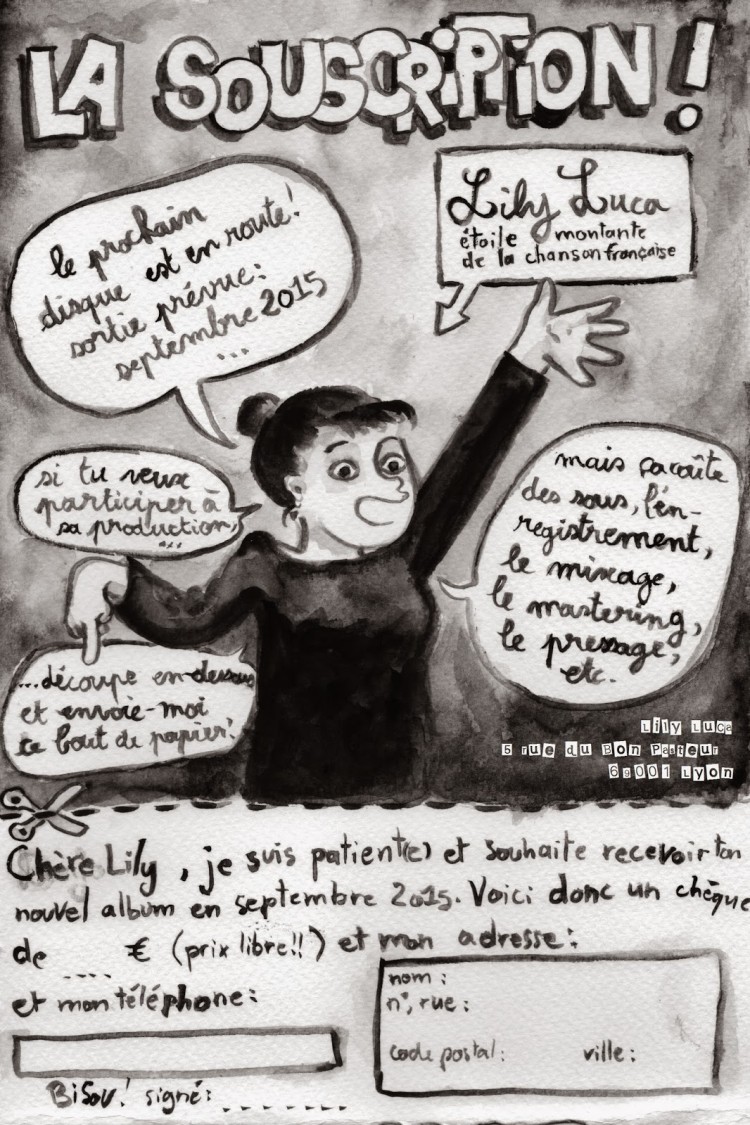 LA SOUSCRIPTION !
Lily Luca
étoile montante
de la chanson française
le prochain
disque est en route!
sortie prévue:
septembre 2015
...
si tu veux
participer à
sa production,
...
mais ça coûte
des sous, l'en-
registrement,
le mixage,
le mastering,
le pressage,
etc.
...découpe en-dessous
et envoie-moi
ce bout de papier!
Lily Luca
5 rue du Bon Pasteur
69001 Lyon
Chère Lily, je suis patient(e) et souhaite recevoir ton
nouvel album en septembre 2015. Voici donc un chèque
de .... € (prix libre!!) et mon adresse:
nom :
n°, rue :
code postal : ville :
et mon téléphone:
Bisou! signé: .......